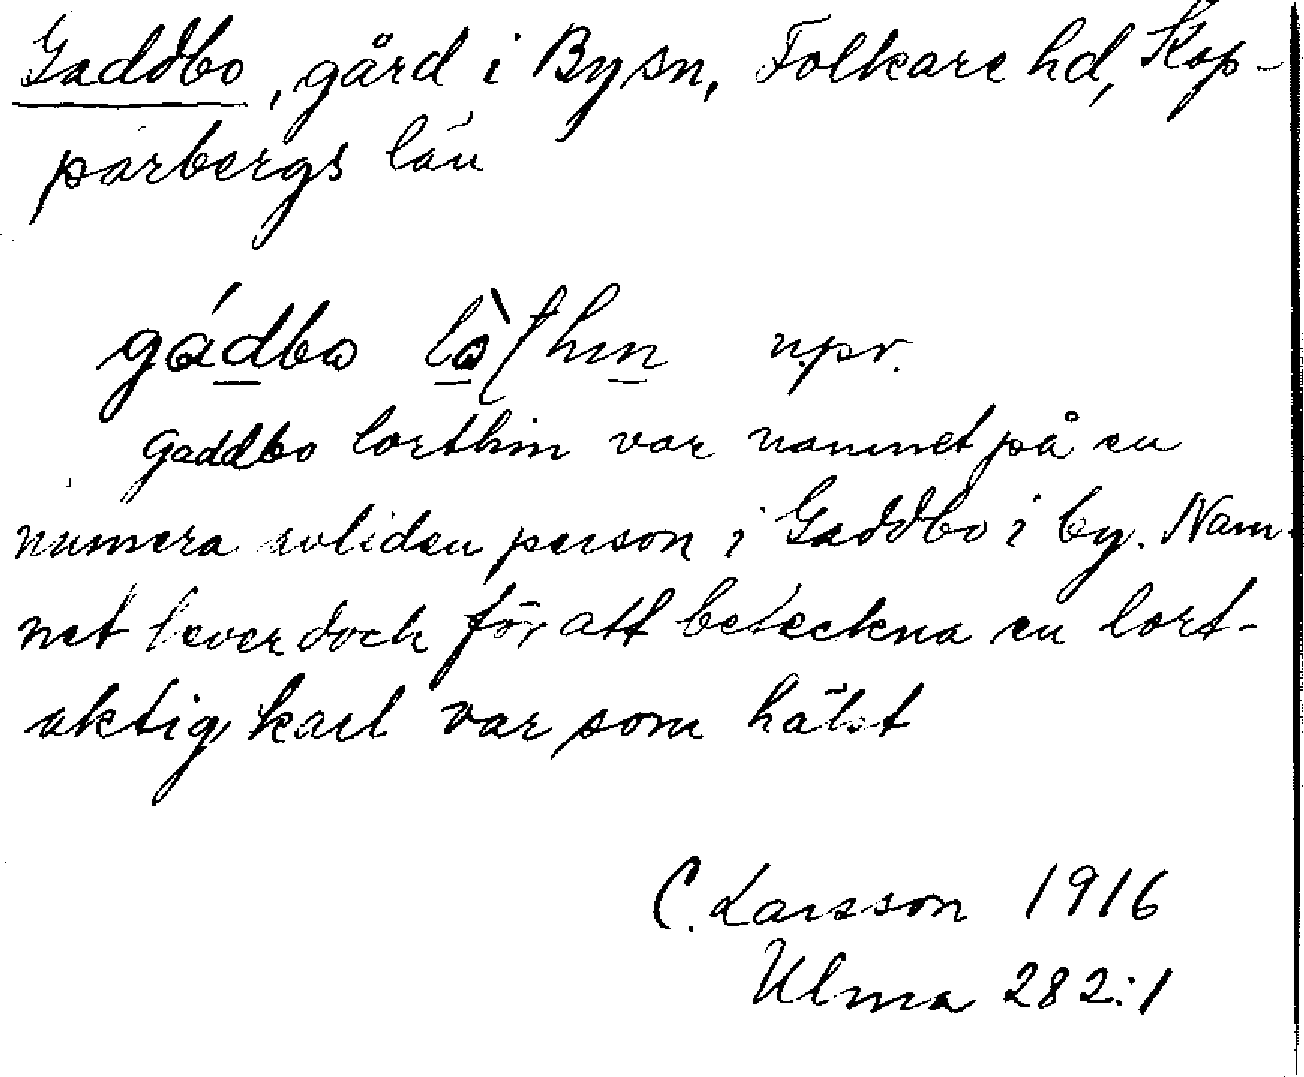 Gaddbo, gård i Bysn, Folkare hd, Kop-
parbergs län
gádbo
n.pr.
gaddbo lorthin var namnet på en
numera avliden person i Gaddbo i by. Nam-
net lever dock för att beteckna en lort-
aktig karl var som hälst
C. Larsson 1916
Ulma 282:1